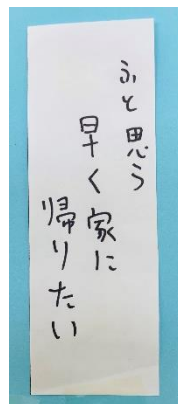 ふと思う
早く家に
帰りたい